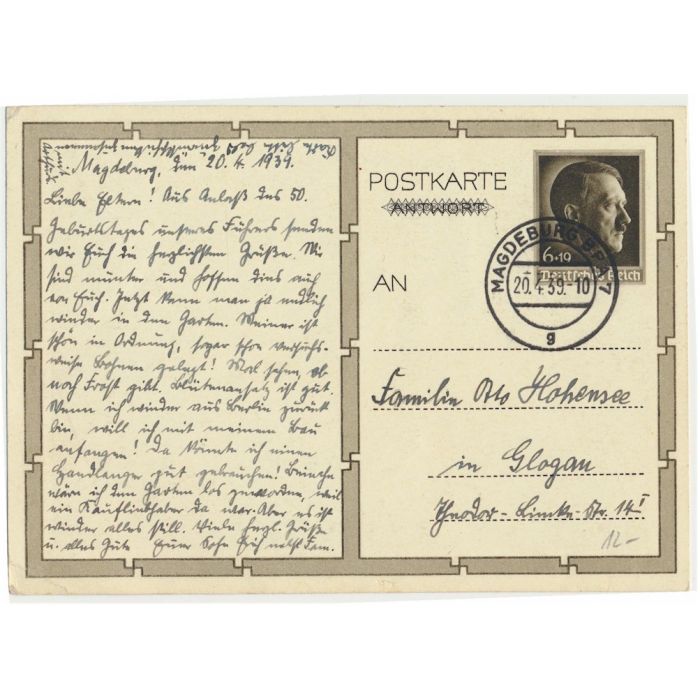 Magdeburg, den 20.4.1939.
Liebe Eltern! Aus Anlaß des 50.
Geburtstages unseres Führers senden
wir Euch die herzlichsten Grüße. Wir
sind munter und hoffen dies auch
von Euch. Jetzt kann man ja endlich
wieder in den Garten. Meiner ist
schön in Ordnung, sogar schon versuchs-
weise Bohnen gelegt! Mal sehen, ob
noch Frost gibt. Blütenansatz ist gut.
Wenn ich wieder aus Berlin zurück
bin, will ich mit meinem Bau
anfangen! Da könnte ich einen
Handlanger gut gebrauchen! Beinahe
wäre ich den Garten los geworden, weil
ein Kaufliebhaber da war. Aber es ist
wieder alles still. Viele herzl. Grüße
u. alles Gute Euer Sohn Erich nebst Fam.
POSTKARTE
ANTWORT
AN
6+19
Deutsches Reich
MAGDEBURG BPA 7
20.4.39.-10
g
Familie Otto Hohensee
in Glogau
Theodor-Limke-Str. 14 I
12-